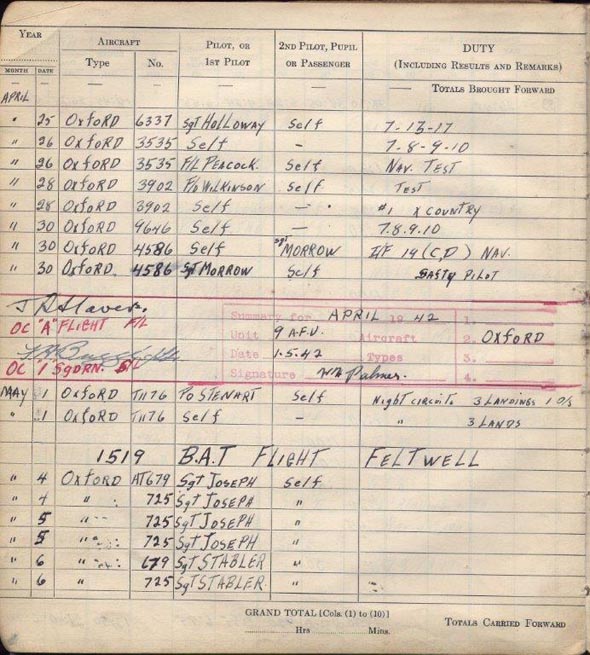 YEAR AIRCRAFT PILOT, OR 2ND PILOT, PUPIL DUTY
MONTH DATE Type No. 1ST PILOT OR PASSENGER (INCLUDING RESULTS AND REMARKS)
— — — — — — — TOTALS BROUGHT FORWARD
APRIL
" 25 OXFORD 6337 Sgt HOLLOWAY Self 7-13-17
" 26 OXFORD 3535 Self — 7-8-9-10
" 26 OXFORD 3535 F/L PEACOCK. Self NAV. TEST
" 28 OXFORD 3902 P/O WILKINSON Self TEST
" 28 OXFORD 3902 Self — #1 X COUNTRY
" 30 OXFORD 9646 Self — 7.8.9.10
" 30 OXFORD 4586 Self Sgt MORROW I/F 19 (C,D) NAV.
" 30 OXFORD. 4586 Sgt MORROW Self SAFTY PILOT
OC "A" FLIGHT F/L
Summary for APRIL 1942 1.
Unit 9 A.F.U. Aircraft 2. OXFORD
Date 1.5.42 Types 3.
Signature Palmer. 4.
OC 1 SQDRN. S/L
MAY 1 OXFORD T1176 P/O STEWART Self NIGHT CIRCUITS 3 LANDINGS
" 1 OXFORD T1176 Self — " 3 LANDS
1519 B.A.T FLIGHT FELTWELL
" 4 OXFORD AT679 Sgt JOSEPH Self
" 4 " 725 Sgt JOSEPH "
" 5 " 725 Sgt JOSEPH "
" 5 " 725 Sgt JOSEPH "
" 6 " 679 Sgt STABLER "
" 6 " 725 Sgt STABLER. "
GRAND TOTAL [Cols. (1) to (10)]
Hrs Mins. TOTALS CARRIED FORWARD